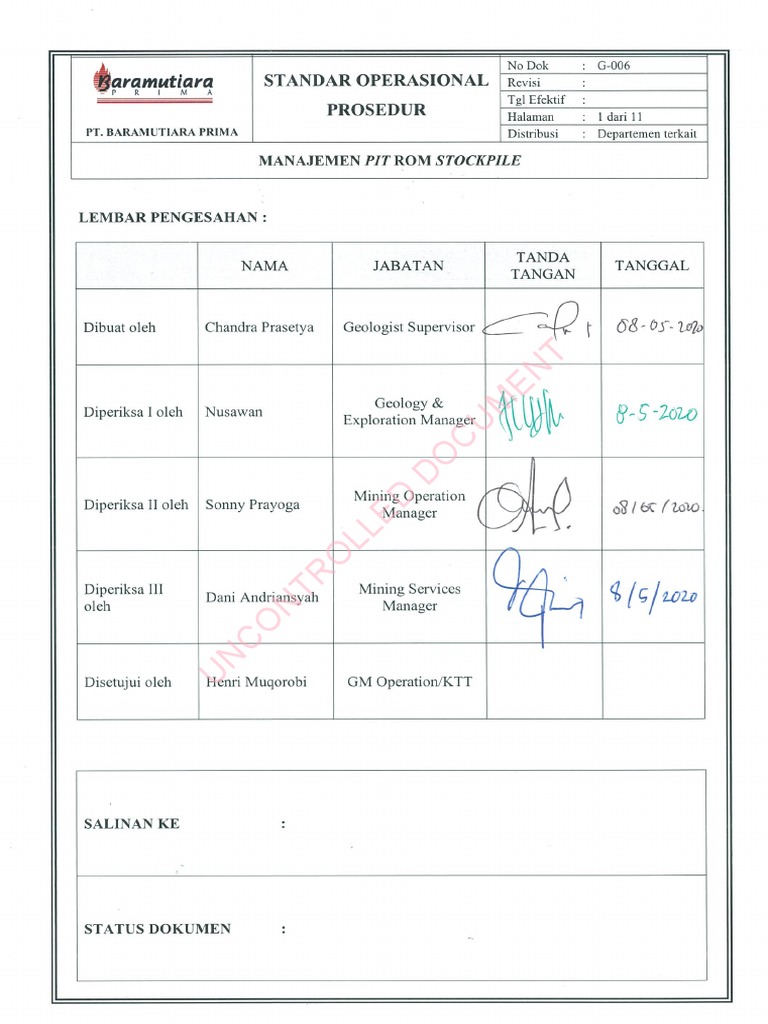 Baramutiara
PRIMA
PT. BARAMUTIARA PRIMA
STANDAR OPERASIONAL
PROSEDUR
No Dok : G-006
Revisi :
Tgl Efektif :
Halaman : 1 dari 11
Distribusi : Departemen terkait
MANAJEMEN PIT ROM STOCKPILE
LEMBAR PENGESAHAN :
NAMA JABATAN TANDA TANGAN TANGGAL
Dibuat oleh Chandra Prasetya Geologist Supervisor 08-05-2020
Diperiksa I oleh Nusawan Geology & Exploration Manager 8-5-2020
Diperiksa II oleh Sonny Prayoga Mining Operation Manager 08/05/2020.
Diperiksa III oleh Dani Andriansyah Mining Services Manager 8/5/2020
Disetujui oleh Henri Muqorobi GM Operation/KTT
UNCONTROLLED DOCUMENT
SALINAN KE :
STATUS DOKUMEN :